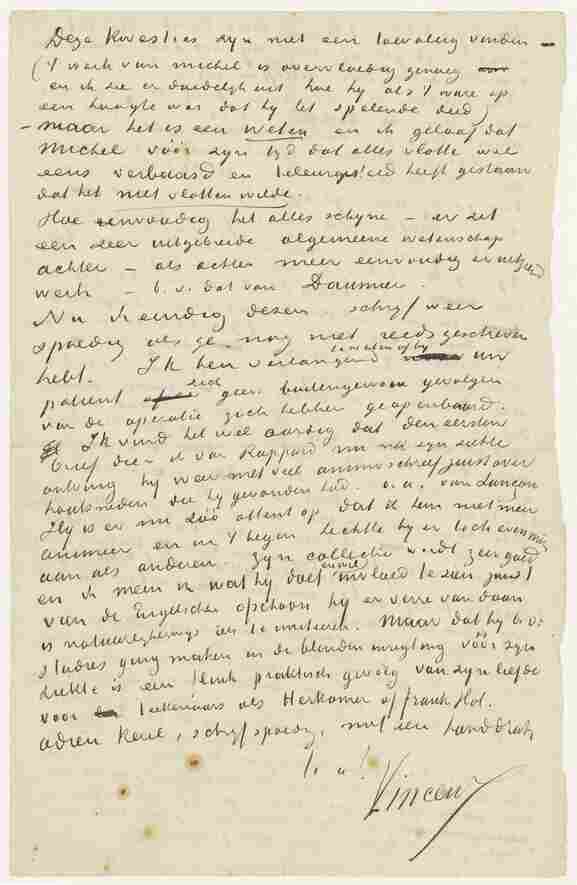 Deze kwesties zyn niet een toevallig vinden –
('t werk van Michel is overvloedig genoeg
en ik zie er duidelyk uit hoe hy als 't ware op
een hoogte was dat hy het spelende deed)
– maar het is een weten en ik geloof dat
Michel vóór zyn tyd dat alles vlotte wel
eens verbaasd en teleurgesteld heeft gestaan
dat het niet vlotten wilde.
Hoe eenvoudig het alles schyne – er zit
een zeer uitgebreide algemeene wetenschap
achter – als achter meer eenvoudig er uitziend
werk – b.v. dat van Daumier.
Nu ik eindig dezen. schryf weer
spoedig als ge nog niet reeds geschreven
hebt. Ik ben verlangend te weten of by uw
patient ook geen buitengewoon gevolgen
van de operatie zich hebben geopenbaard.
Ik vind het wel aardig dat den eersten
brief dien ik van Rappard nu na zyn ziekte
ontving hy weer met veel animo schreef juist over
houtsneden die hy gevonden had. o.a. van Lançon
Hy is er nu zóó attent op dat ik hem niet meer
animeer en in 't begin hechtte hy er toch even min
aan als anderen. Zyn collectie wordt zeer goed
en ik meen in wat hy doet invloed te zien juist
van de Engelschen ofschoon hy er verre van daan
is natuurlyk iets te imiteeren. Maar dat hy b.v.
studies ging maken in de blinden inrigting vóór zyn
ziekte is een flink praktisch gevolg van zyn liefde
voor teekenaars als Herkomer of Frank Hol.
adieu kerel, schryf spoedig, met een handdruk
t. à t.
Vincent